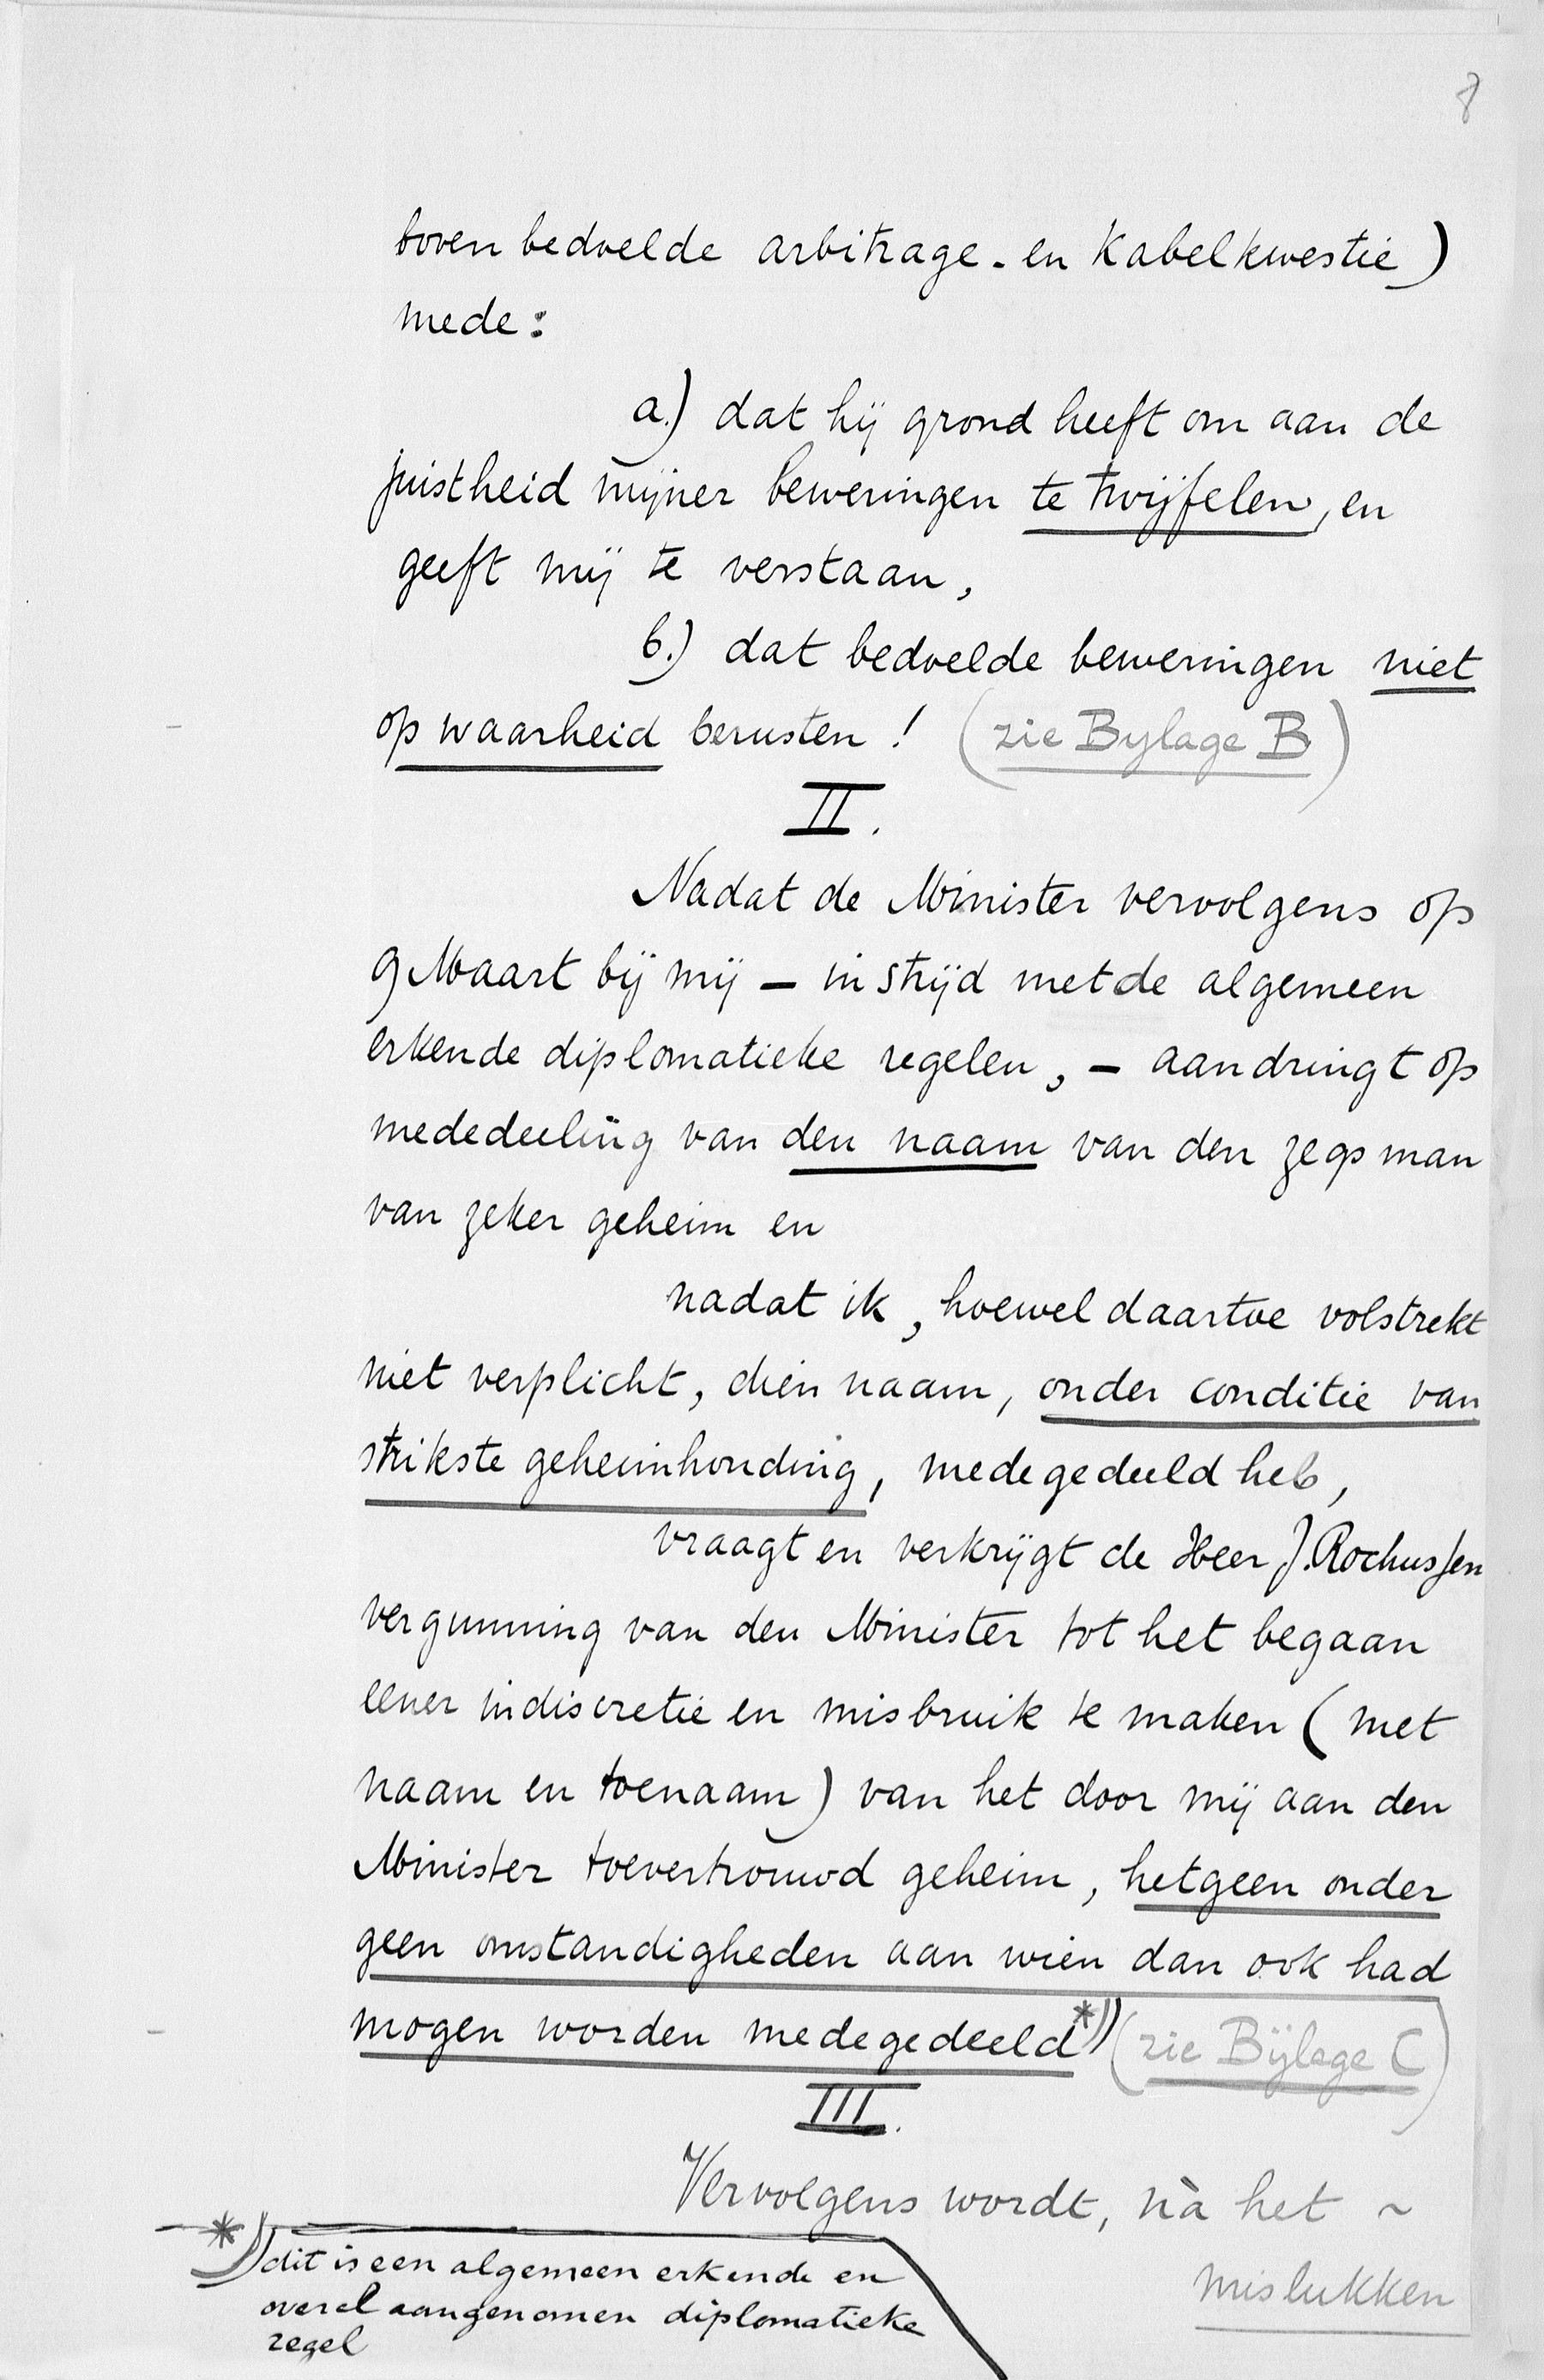 8
boven bedoelde arbitrage- en Kabelkwestie)
mede:
a.) dat hij grond heeft om aan de
juistheid mijner beweringen te twijfelen, en
geeft mij te verstaan,
b.) dat bedoelde beweringen niet
op waarheid berusten! (zie Bylage B)
II.
Nadat de Minister vervolgens op
9 Maart bij mij – in strijd met de algemeen
erkende diplomatieke regelen, – aandringt op
mededeeling van den naam van den zegsman
van zeker geheim en
nadat ik, hoewel daartoe volstrekt
niet verplicht, dien naam, onder conditie van
strikste geheimhouding, medegedeeld heb,
vraagt en verkrijgt de Heer J. Rochussen
vergunning van den Minister tot het begaan
eener indiscretie en misbruik te maken (met
naam en toenaam) van het door mij aan den
Minister toevertrouwd geheim, hetgeen onder
geen omstandigheden aan wien dan ook had
mogen worden medegedeeld *) (zie Bijlage C)
III.
Vervolgens wordt, nà het ~
mislukken
*) dit is een algemeen erkende en
overal aangenomen diplomatieke
regel